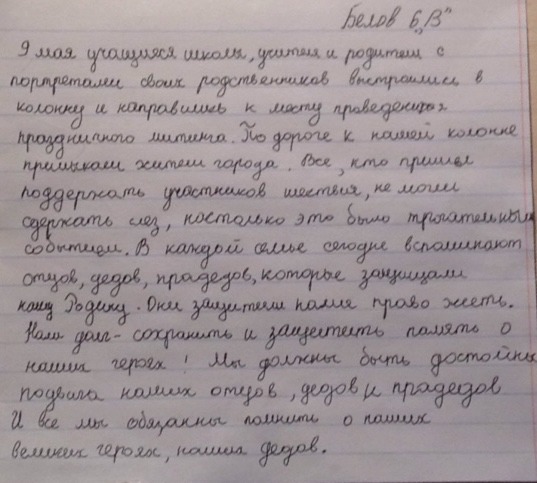 Белов 6 „В"
9 мая учащиеся школы, учителя и родители с
портретами своих родственников выстроились в
колонну и направились к месту проведения
праздничного митинга. По дороге к нашей колонне
примыкали жители города. Все, кто пришёл
поддержать участников шествия, не могли
сдержать слёз, настолько это было трогательным
событием. В каждой семье сегодня вспоминают
отцов, дедов, прадедов, которые защищали
нашу Родину. Они защитили наше право жить.
Наш долг - сохранить и защитить память о
наших героях! Мы должны быть достойны
подвига наших отцов, дедов и прадедов
И все мы обязанны помнить о наших
великих героях, наших дедов.